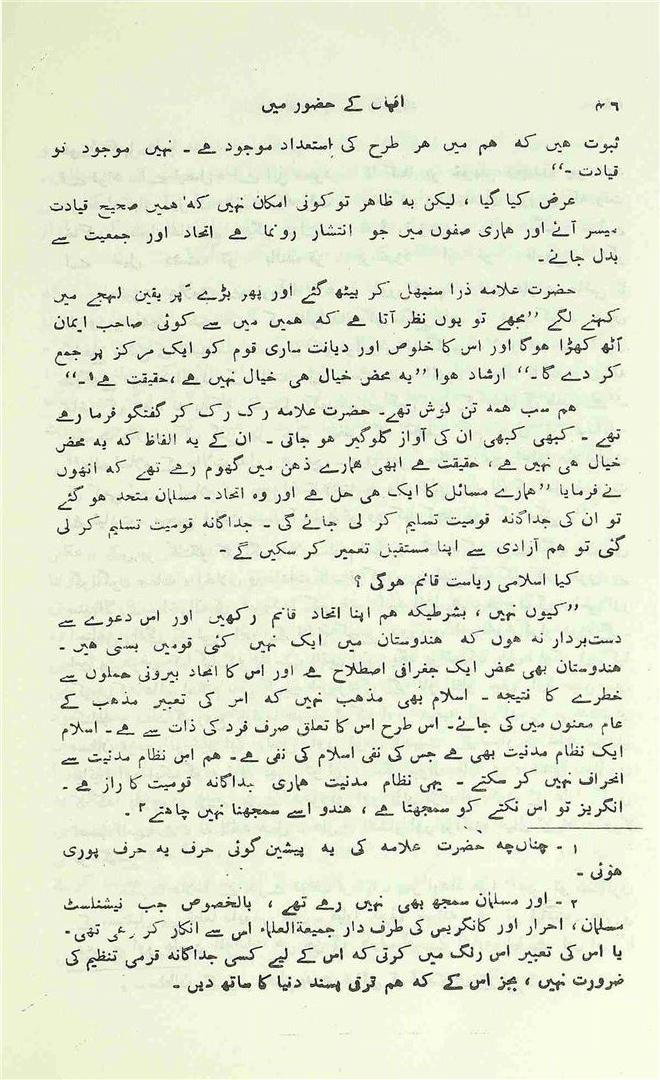 ۴۶ اقبال کے حضور میں
ثبوت ہیں کہ ہم میں ہر طرح کی استعداد موجود ہے ۔ نہیں موجود تو
قیادت ۔“
عرض کیا گیا ، لیکن بہ ظاہر تو کوئی امکان نہیں کہ ہمیں صحیح قیادت
میسر آئے اور ہماری صفوں میں جو انتشار رونما ہے اتحاد اور جمعیت سے
بدل جائے ۔
حضرت علامہ ذرا سنبھل کر بیٹھ گئے اور پھر بڑے پر یقین لہجے میں
کہنے لگے ”مجھے تو یوں نظر آتا ہے کہ ہمیں میں سے کوئی صاحب ایمان
اٹھ کھڑا ہوگا اور اس کا خلوص اور دیانت ساری قوم کو ایک مرکز پر جمع
کر دے گا ۔“ ارشاد ہوا ”یہ محض خیال ہی خیال نہیں ہے ، حقیقت ہے۱ ۔“
ہم سب ہمہ تن گوش تھے ۔ حضرت علامہ رک رک کر گفتگو فرما رہے
تھے ۔ کبھی کبھی ان کی آواز گلوگیر ہو جاتی ۔ ان کے یہ الفاظ کہ یہ محض
خیال ہی نہیں ہے ، حقیقت ہے ابھی ہمارے ذہن میں گھوم رہے تھے کہ انھوں
نے فرمایا ”ہمارے مسائل کا ایک ہی حل ہے اور وہ اتحاد ۔ مسلمان متحد ہو گئے
تو ان کی جداگانہ قومیت تسلیم کر لی جائے گی ۔ جداگانہ قومیت تسلیم کر لی
گئی تو ہم آزادی سے اپنا مستقبل تعمیر کر سکیں گے ۔
کیا اسلامی ریاست قائم ہوگی ؟
”کیوں نہیں ، بشرطیکہ ہم اپنا اتحاد قائم رکھیں اور اس دعوے سے
دست‌بردار نہ ہوں کہ ہندوستان میں ایک نہیں کئی قومیں بستی ہیں ۔
ہندوستان بھی محض ایک جغرافی اصطلاح ہے اور اس کا اتحاد بیرونی حملوں سے
خطرے کا نتیجہ ۔ اسلام بھی مذہب نہیں کہ اس کی تعبیر مذہب کے
عام معنوں میں کی جائے ۔ اس طرح اس کا تعلق صرف فرد کی ذات سے ہے ۔ اسلام
ایک نظام مدنیت بھی ہے جس کی نفی اسلام کی نفی ہے ۔ ہم اس نظام مدنیت سے
انحراف نہیں کر سکتے ۔ یہی نظام مدنیت ہماری جداگانہ قومیت کا راز ہے ۔
انگریز تو اس نکتے کو سمجھتا ہے ، ہندو اسے سمجھنا نہیں چاہتے۲ ۔
۱ ۔ چناں‌چہ حضرت علامہ کی یہ پیشین گوئی حرف بہ حرف پوری
ہوئی ۔
۲ ۔ اور مسلمان سمجھ بھی نہیں رہے تھے ، بالخصوص جب نیشنلسٹ
مسلمان ، احرار اور کانگریس کی طرف دار جمیعۃالعلماء اس سے انکار کر تھی ۔
یا اس کی تعبیر اس رنگ میں کرتی کہ اس کے لیے کسی جداگانہ قومی تنظیم کی
ضرورت نہیں ، بجز اس کے کہ ہم ترقی پسند دنیا کا ساتھ دیں ۔